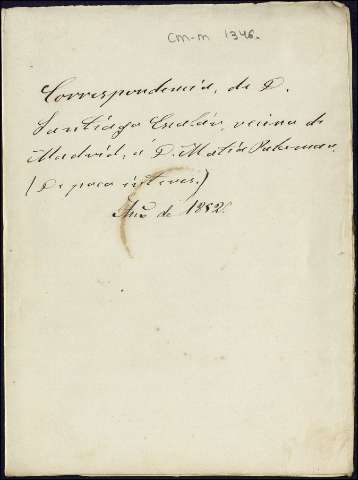 CM-M 1346.
Correspondencia, de D.
Santiago vecino de
Madrid, á D. Matías
(De poco interes.)
Año de 1852.